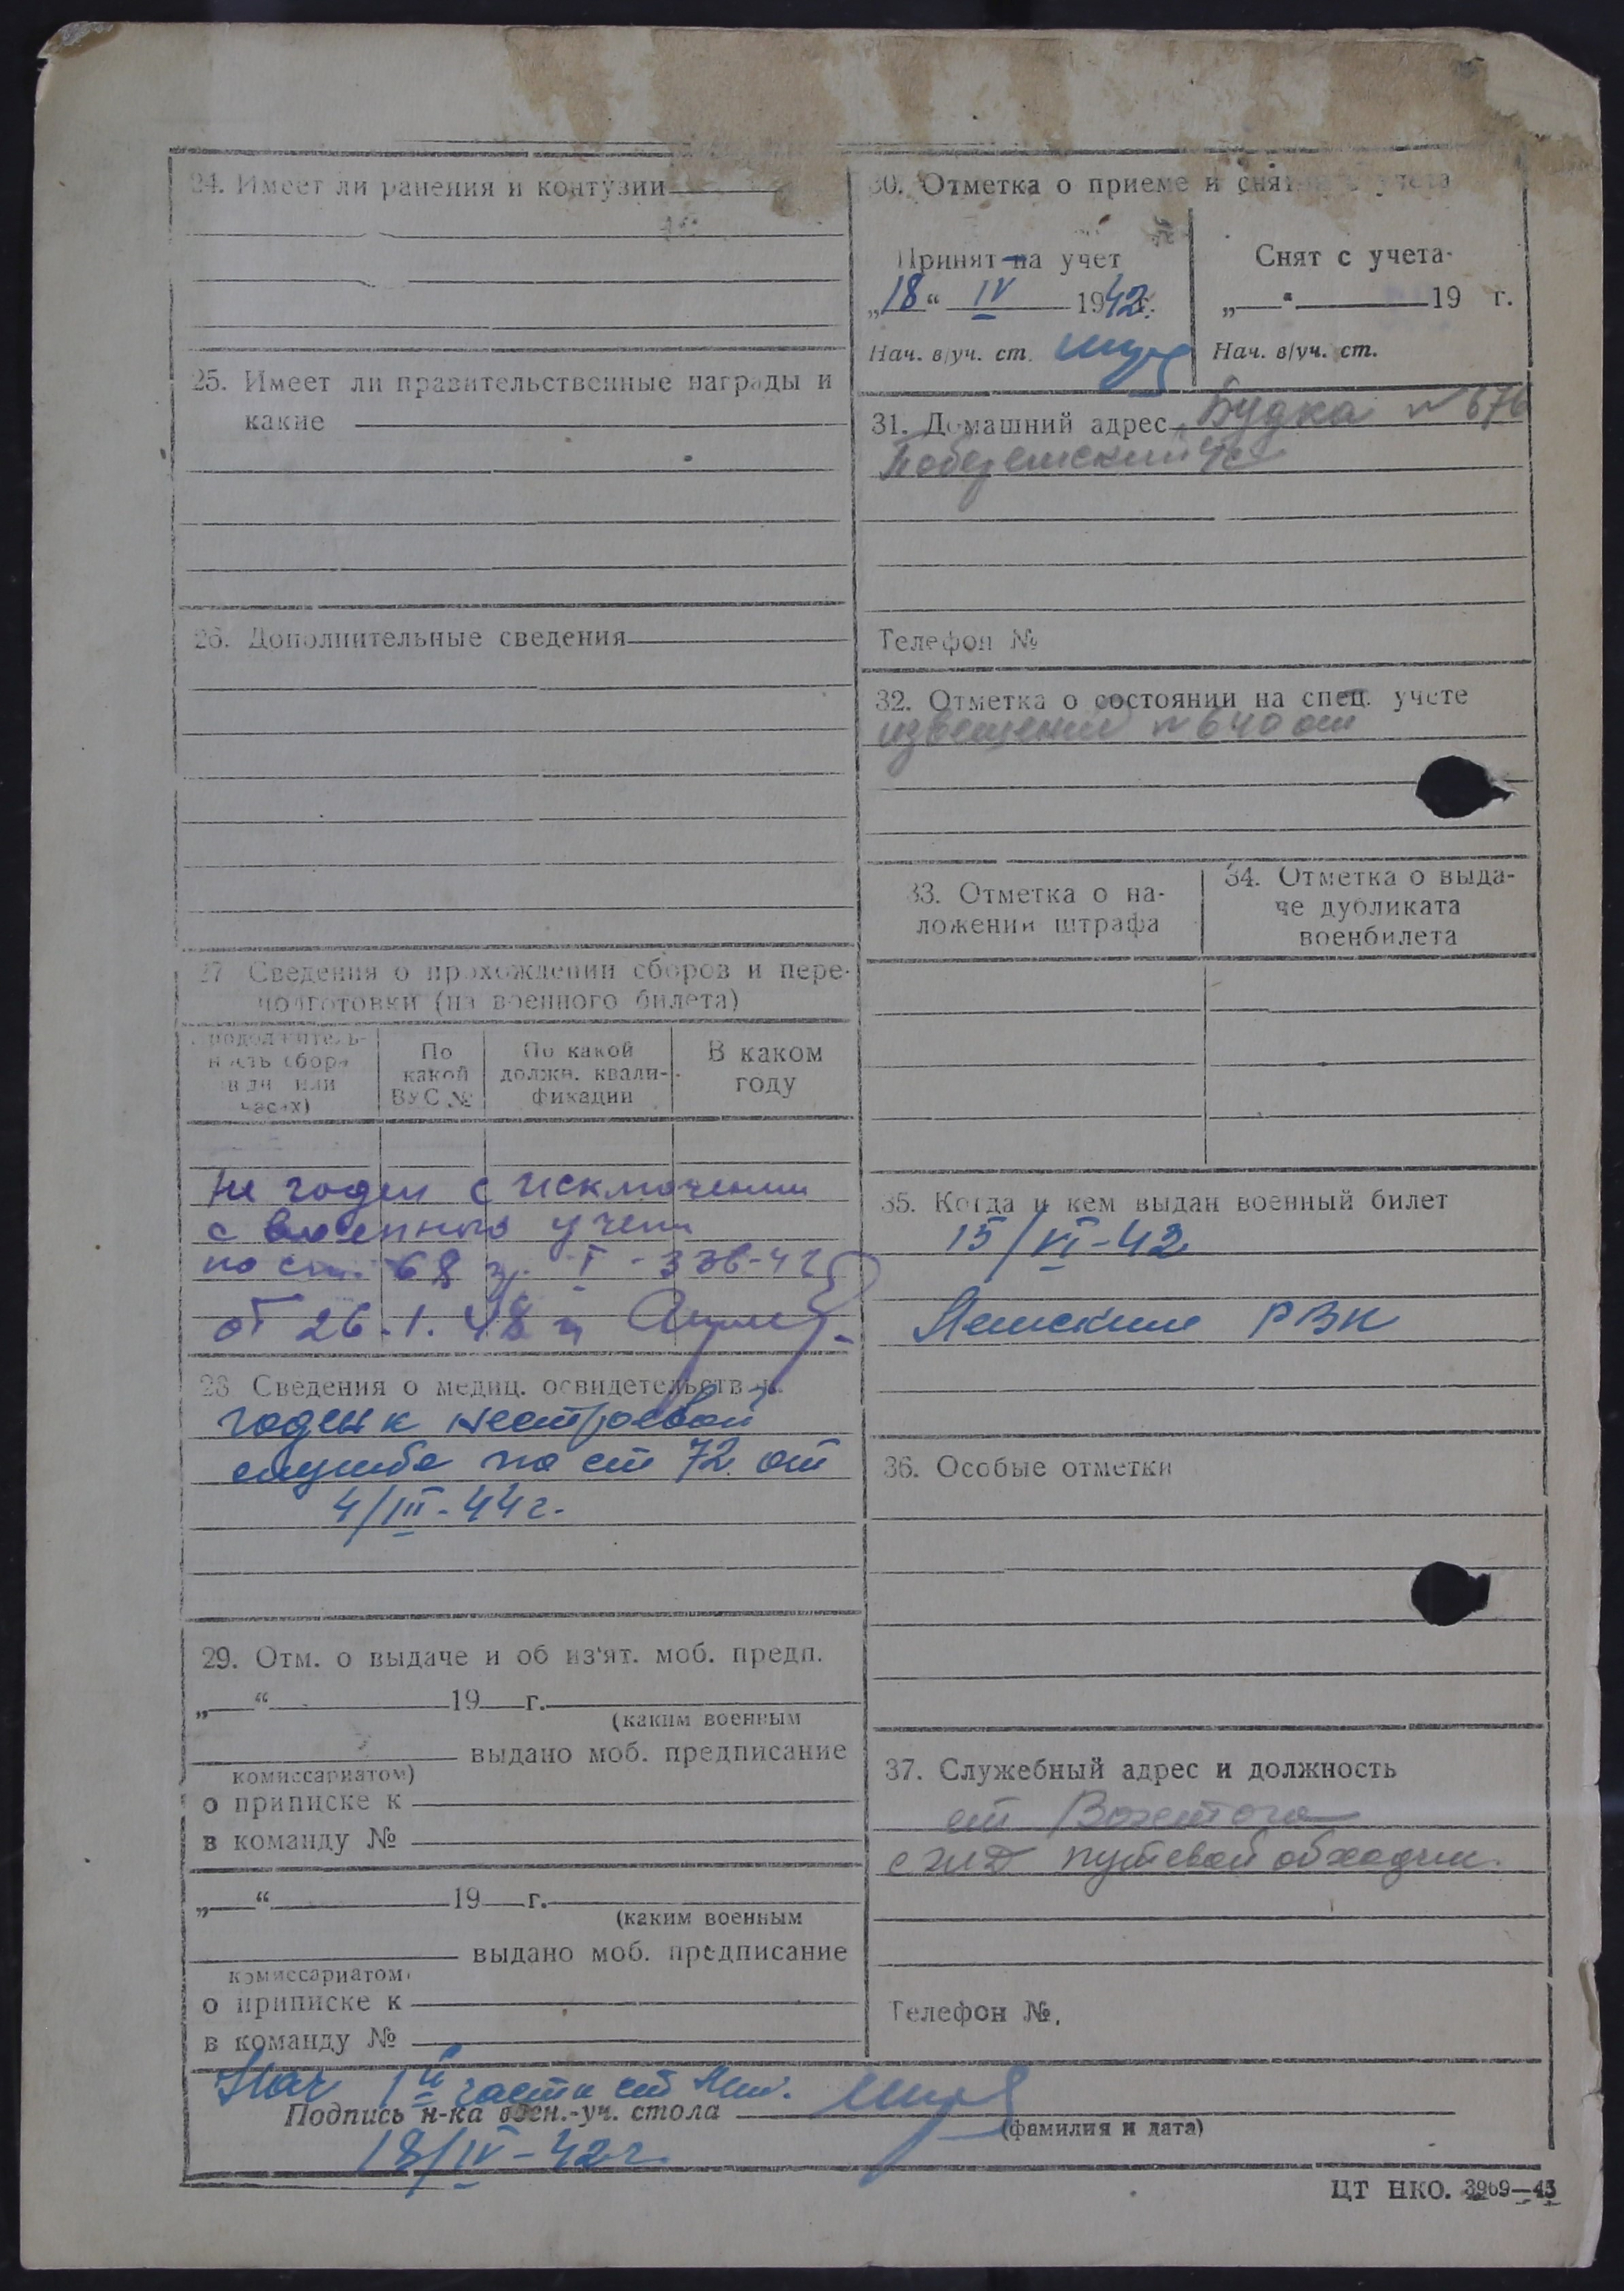 24. Имеет ли ранения и контузии
25. Имеет ли правительственные награды и
какие
26. Дополнительные сведения
27 Сведения о прохождении сборов и пере-
подготовки (из военного билета)
Продолжитель-
ность сбора
в дн или
часах)
По
какой
ВУС №
По какой
должн. квали-
фикации
В каком
году
Не годен с исключением
с военного учета
по ст. 68 гр. I - 336-42
от 26.1.48 г
28 Сведения о медиц. освидетельств
годен к нестроевой
службе по ст 72 от
4/III-44г.
29. Отм. о выдаче и об из'ят. моб. предп.
„ “ 19 г.
(каким военным
выдано моб. предписание
комиссариатом)
о приписке к
в команду №
„ “ 19 г.
(каким военным
выдано моб. предписание
комиссариатом)
о приписке к
в команду №
30. Отметка о приеме и снятии с учета
Принят на учет
„18“ IV 1942г.
Нач. в/уч. ст.
Снят с учета
„ “ 19 г.
Нач. в/уч. ст.
31. Домашний адрес Будка №676
Телефон №
32. Отметка о состоянии на спец. учете
извещение №640 от
33. Отметка о на-
ложении штрафа
34. Отметка о выда-
че дубликата
военбилета
35. Когда и кем выдан военный билет
15/VI-42
РВК
36. Особые отметки
37. Служебный адрес и должность
ст Вожтога
путевой обходчик.
Телефон №.
Нач I й части
Подпись н-ка воен.-уч. стола
(фамилия и дата)
18/IV-42г.
ЦТ НКО. 3969—43